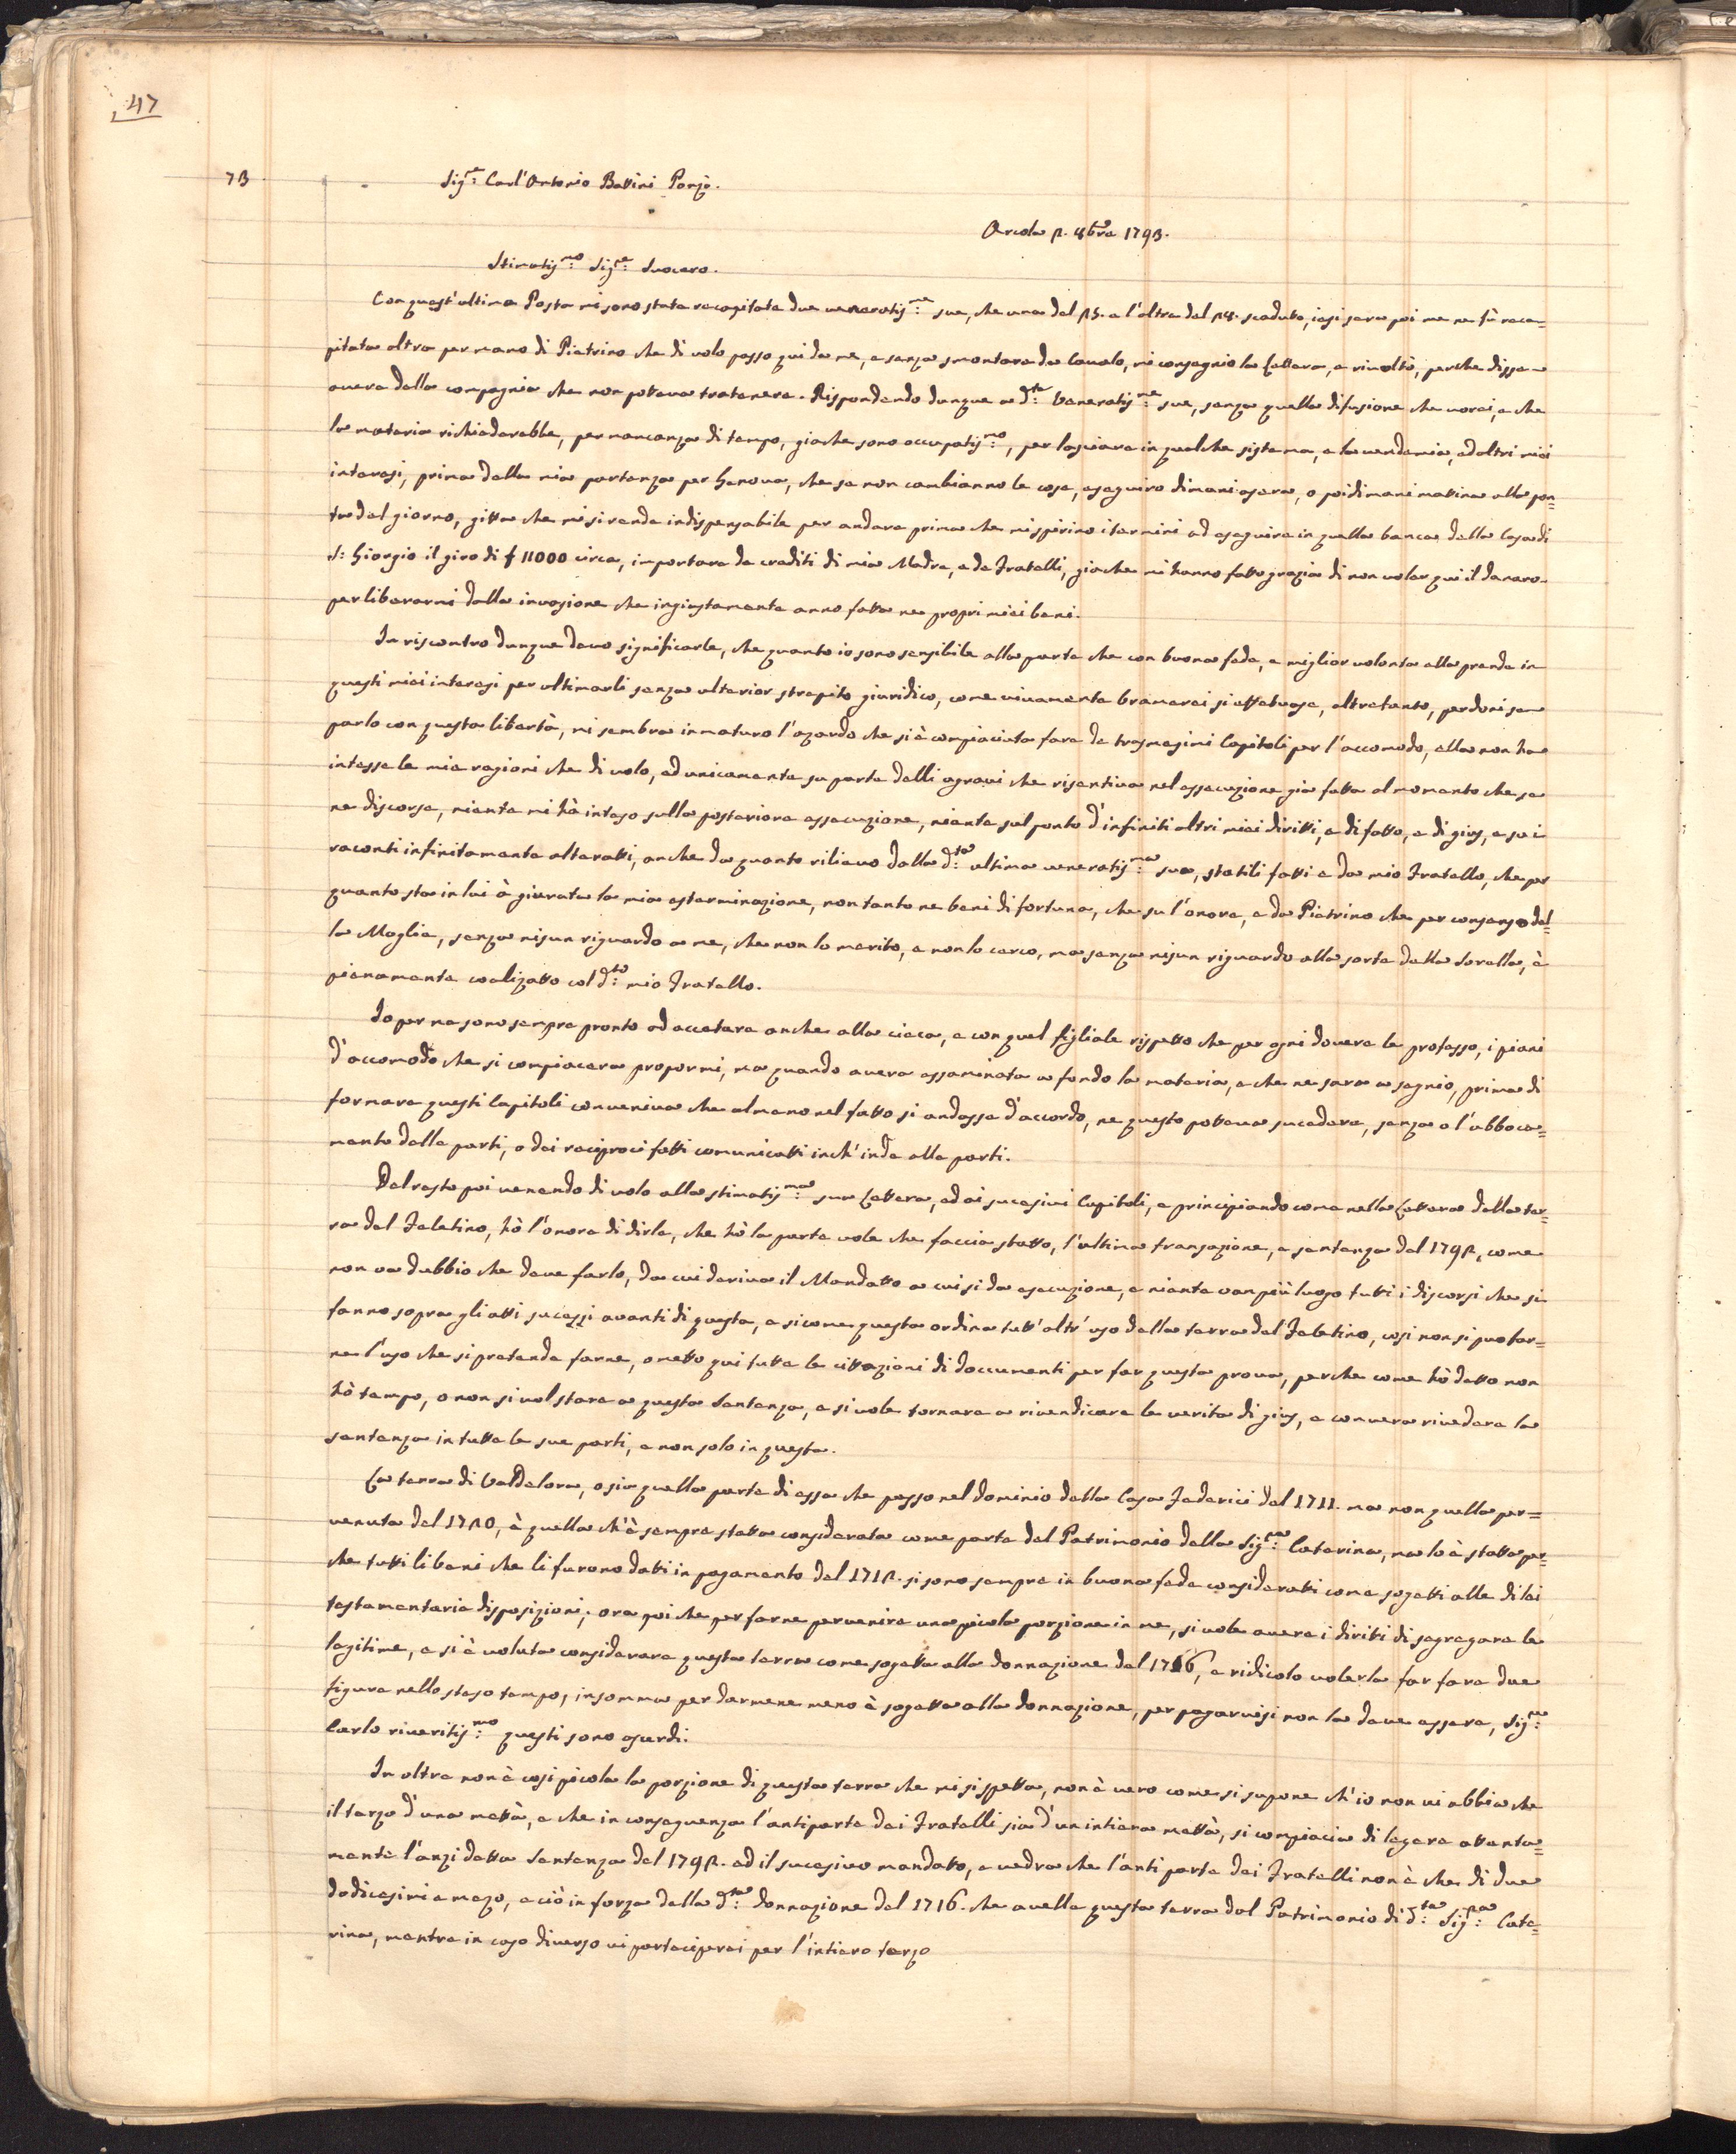 47
73
Sig.re Carl'Antonio Battini Ponz.
Arcola 2. 8bre 1793.
Stimatis.mo Sig.re Suocero.
Con quest'ultima Posta mi sono state recapitate due veneratis.me sue, che una del 23. e l'altra del 28. scaduto, iesi sera poi me ne fù reca=
pitata altra per mano di Pietrino che di volo passo qui da me, e senza smontare da Cavalo, mi consegnio la Lettera, e rivoltò, perche disse
avere della compagnia che non poteva tratenere. Rispondendo dunque a d.te Veneratis.me sue, senza quella difusione che vorei, e che
la materia richiederebbe, per mancanza di tempo, giache sono occupatis.mo, per lasciare in qualche sistema, e la vendemia, ed altri miei
interesi, prima della mia partenza per Genova, che se non cambianno le cose, eseguiro dimani asera, o poidimani matina alla pon=
ta del giorno, gitta che mi si rende indispensabile per andare prima che mi spirino i termini ad eseguire in quella banca della Casa di
S: Giorgio il giro di £ 11000 circa, importare de crediti di mia Madre, e de Fratelli, giache mi hanno fatto grazia di non voler qui il danaro
per liberarmi dalla invasione che ingiustamente anno fatta ne propri miei beni.
In riscontro dunque devo significarle, che quanto io sono sensibile alla parte che con buona fede, e miglior volonta ella prende in
questi miei interesi per ultimarli senza ulterior strepito giuridico, come vivamente bramerei si effetuase, altretanto, perdoni se
parlo con questa libertà, mi sembra inmaturo l'azardo che si è compiaciuta fare de trasmesimi Capitoli per l'accomodo, ella non ha
intesse le mie ragioni che di volo, ed unicamente su parte delli agravi che risentiva nel essecuzione gia fatta al momento che se
ne discorse, niente mi hà inteso sulla posteriore essecuzione, niente sul punto d'infiniti altri miei diritti, e di fatto, e di gius, e su i
raconti infinitamente alteratti, anche da quanto rilievo dalla d.ta ultima veneratis.ma sua, statili fatti e da mio Fratello, che per
quanto sta in lui à giurata la mia esterminazione, non tanto ne beni di fortuna, che su l'onore, e da Pietrino che per consenso del=
la Moglie, senza nisun riguardo a me, che non lo merito, e non lo cerco, ma senza nisun riguardo alla sorte della Sorella, è
pienamente coalizatto col d.to mio Fratello.
Io per me sono sempre pronto ad accetare anche alla cieca, e con quel figliale rispetto che per ogni dovere le professo, i piani
d'accomodo che si compiacera propormi, ma quando avera essaminata a fondo la materia, e che ne sara a segnio, prima di
formare questi Capitoli conveniva che almeno nel fatto si andasse d'accordo, ne questo potteva sucedere, senza o l'abboca=
mento delle parti, o dei reciproci fatti comunicatti inch'inde alle parti.
Del resto poi venendo di volo alla stimatis.ma sua Lettera, ed ai sucesivi Capitoli, e principiando come nella Lettera dalla ter=
ra del Faletino, hò l'onore di dirle, che hò la parte vole che faccia statto, l'ultima transazione, e sentenza del 1792, come
non va dubbio che deve farlo, da cui deriva il Mandatto a cui si da esecuzione, e niente van più luogo tutti i discorsi che si
fanno sopra gli atti sucessi avanti di questa, e sicome questa ordina tutt'altr'uso della terra del Faletino, cosi non si puo far=
ne l'uso che si pretende farne, ometto qui tutte le cittazioni di doccumenti per far questa prova, perche come hò detto non
hò tempo, o non si vol stare a questa Sentenza, e si vole tornare a rivendicare le verita di gius, e convera rivedere la
sentenza in tutte le sue parti, e non solo in questa.
La terra di Valdelora, o sia quella parte di essa che passo nel dominio della Casa Federici del 1711. ma non quella per=
venuta del 1720, è quella ch'è sempre statta considerata come parte del Patrimonio della Sig.ra Caterina, ma lo è statta per=
che tutti li beni che li furono datti in pagamento del 1712. si sono sempre in buona fede consideratti come sogetti alle di lei
testamentarie disposizioni; ora poi che per farne pervenire una picola porzione in me, si vole avere i diriti di segregare le
legitime, e si è voluta considerare questa terra come sogetta alla donnazione del 1716, e ridicolo volerla far fare due
figure nello steso tempo, insomma per darmene meno è sogetta alla donnazione, per pagarvisi non la deve essere, Sig.re
Carlo riveritis.mo questi sono asurdi.
In oltre non è cosi picola la porzione di questa terra che mi si spetta, non è vero come si supone ch'io non vi abbia che
il terzo d'una mettà, e che in conseguenza l'antiparte dei Fratelli sia d'un intiera mettà, si compiacia di legere attenta=
mente l'anzi detta Sentenza del 1792. ed il sucesivo mandatto, e vedra che l'anti parte dei Fratelli non è che di due
dodicesimi e mezo, e ciò in forza della d.ta donnazione del 1716. che avelle questa terra dal Patrimonio di d.ta Sig.ra Cate=
rina, mentre in caso diverso vi parteciperei per l'intiero terzo